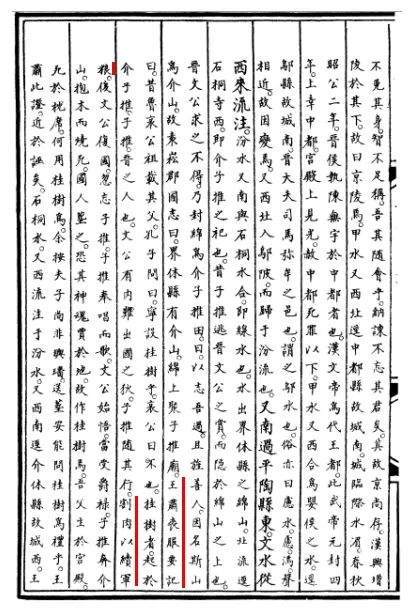 不免其身。智不足稱。吾其隨會乎。納諫不忘其君矣。其故京尚存。漢興增
陵於其下。故曰京陵焉。甲水又西北逕中都縣故城南。城臨際水湄。春秋
昭公二年。晉侯執陳無宇於中都者也。漢文帝為代王都此。武帝元封四
年。上幸中都宮。殿上見光。赦中都死罪以下。甲水又西合為嬰侯之水。逕
鄔縣故城南。晉大夫司馬彌牟之邑也。謂之鄔水也。俗亦曰慮水。慮鄔聲
相近。故因變焉。又西北入鄔陂。而歸于汾流也。又南過平陶縣東。文水從
西來流注。汾水又南與石桐水合。即綿水也。水出界休縣之綿山。北流逕
石桐寺西。即介子推之祠也。昔子推逃晉文公之賞。而隱於綿山之上也。
晉文公求之不得。乃封綿為介子推田。曰。以志吾過。且旌善人。因名斯山
為介山。故袁崧郡國志曰。界休縣有介山。綿上聚。子推廟。王肅喪服要記
曰。昔魯哀公祖載其父。孔子問曰。寧設桂樹乎。哀公曰。不也。桂樹者。起於
介子推。子推。晉之人也。文公有內難。出國之狄。子推隨其行。割肉以續軍
糧。後文公復國。忽忘子推。子推奉唱而歌。文公始悟。當受爵祿。子推奔介
山。抱木而燒死。國人葬之。恐其神魂霣於地。故作桂樹焉。吾父生於宮殿。
死於枕席。何用桂樹為。余按夫子尚非璵璠送葬。安能問桂樹為禮乎。王
肅此證。近於誣矣。石桐水又西流注于汾水。又西南逕介休縣故城西。王